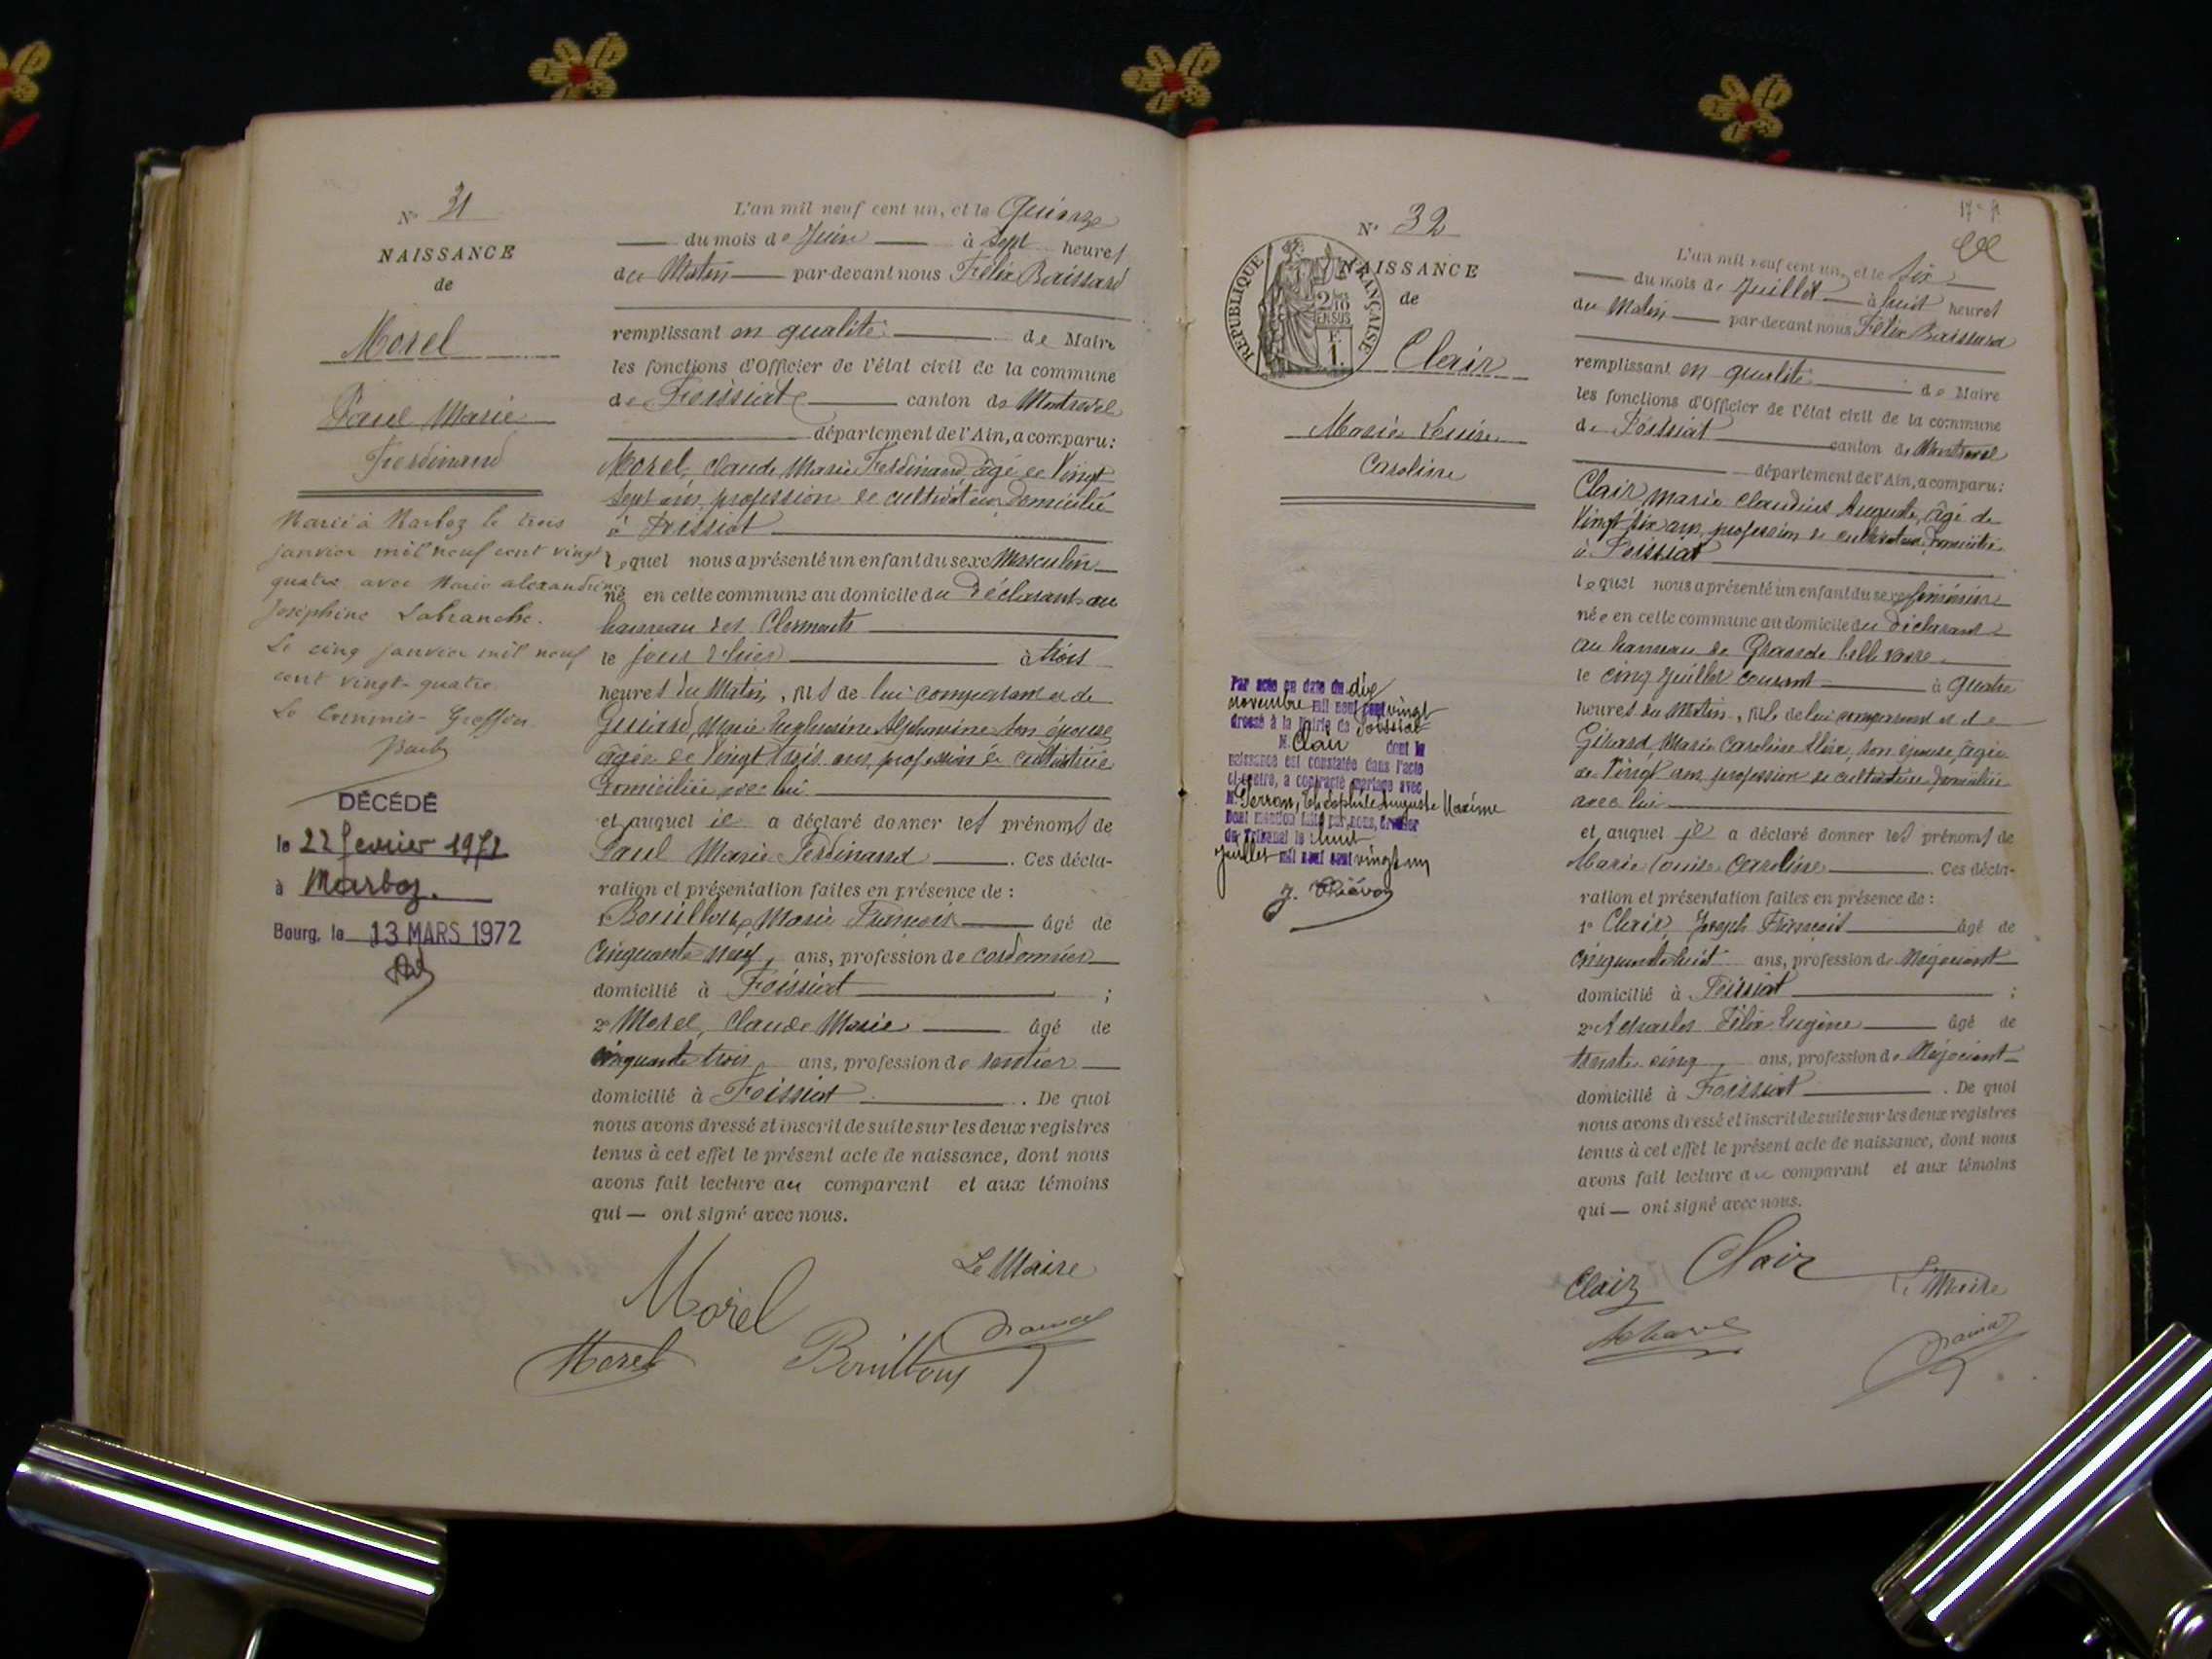 N° 31
NAISSANCE
de
Morel
Paul Marie
Ferdinand
Marié à Marboz le trois
janvier mil neuf cent vingt
quatre avec Marie alexandrine
Joséphine Labranche.
Le cinq janvier mil neuf
cent vingt-quatre
Le Commis-Greffier
DÉCÉDÉ
le 22 février 1972
à Marboz.
Bourg, le 13 MARS 1972
L'an mil neuf cent un, et le Quinze
du mois de Juin à Sept heures
du Matin par-devant nous Félix Baissard
remplissant en qualité de Maire
les fonctions d'Officier de l'état civil de la commune
de Foissiat canton de Montrevel
département de l'Ain, a comparu:
Morel, Claude Marie Ferdinand, âgé de Vingt
Sept ans, profession de cultivateur, domicilié
à Foissiat
lequel nous a présenté un enfant du sexe Masculin
né en cette commune au domicile du Déclarant au
hameau des Clermonts
le jour d'hier à trois
heures du Matin, fils de lui comparant et de
Marie son épouse
âgée de Vingt trois ans, profession de cultivatrice
Domiciliée avec lui
et auquel il a déclaré donner les prénoms de
Paul Marie Ferdinand . Ces décla-
ration et présentation faites en présence de :
1° Bouilloux, Marie François âgé de
Cinquante neuf, ans, profession de cordonnier
domicilié à Foissiat ;
2° Morel, Claude Marie âgé de
cinquante trois, ans, profession de rentier
domicilié à Foissiat . De quoi
nous avons dressé et inscrit de suite sur les deux registres
tenus à cet effet le présent acte de naissance, dont nous
avons fait lecture au comparant et aux témoins
qui — ont signé avec nous.
Le Maire
Morel
Morel Bouilloux
N° 32
RÉPUBLIQUE FRANÇAISE
NAISSANCE
de
Clair
Marie Louise
Caroline
Par acte en date du dix
novembre mil neuf cent vingt
dressé à la Mairie de Foissiat
M. Clair dont la
naissance est constatée dans l'acte
ci-contre, a contracté mariage avec
M. Perron, Théophile Auguste Maxime
Dont mention faite par nous, Greffier
du Tribunal le huit
Juillet mil neuf cent vingt un
L'an mil neuf cent un, et le Six
du mois de Juillet à huit heures
du Matin par-devant nous Félix Baissard
remplissant en qualité de Maire
les fonctions d'Officier de l'état civil de la commune
de Foissiat canton de Montrevel
département de l'Ain, a comparu:
Clair, Marie Claudius Auguste, âgé de
Vingt six ans, profession de cultivateur, domicilié
à Foissiat
lequel nous a présenté un enfant du sexe féminin
née en cette commune au domicile du déclarant
au hameau de Grande
le cinq Juillet courant à Quatre
heures du Matin, fille de lui comparant et de
Girard, Marie Caroline Elise, son épouse, âgée
de Vingt ans, profession de cultivatrice, domiciliée
avec lui
et auquel il a déclaré donner les prénoms de
Marie Louise Caroline . Ces décla-
ration et présentation faites en présence de :
1° Clair, Joseph François âgé de
Cinquante huit ans, profession de Négociant
domicilié à Foissiat ;
2° Félix Eugène âgé de
trente cinq, ans, profession de Négociant
domicilié à Foissiat . De quoi
nous avons dressé et inscrit de suite sur les deux registres
tenus à cet effet le présent acte de naissance, dont nous
avons fait lecture au comparant et aux témoins
qui — ont signé avec nous.
Clair Clair Le Maire